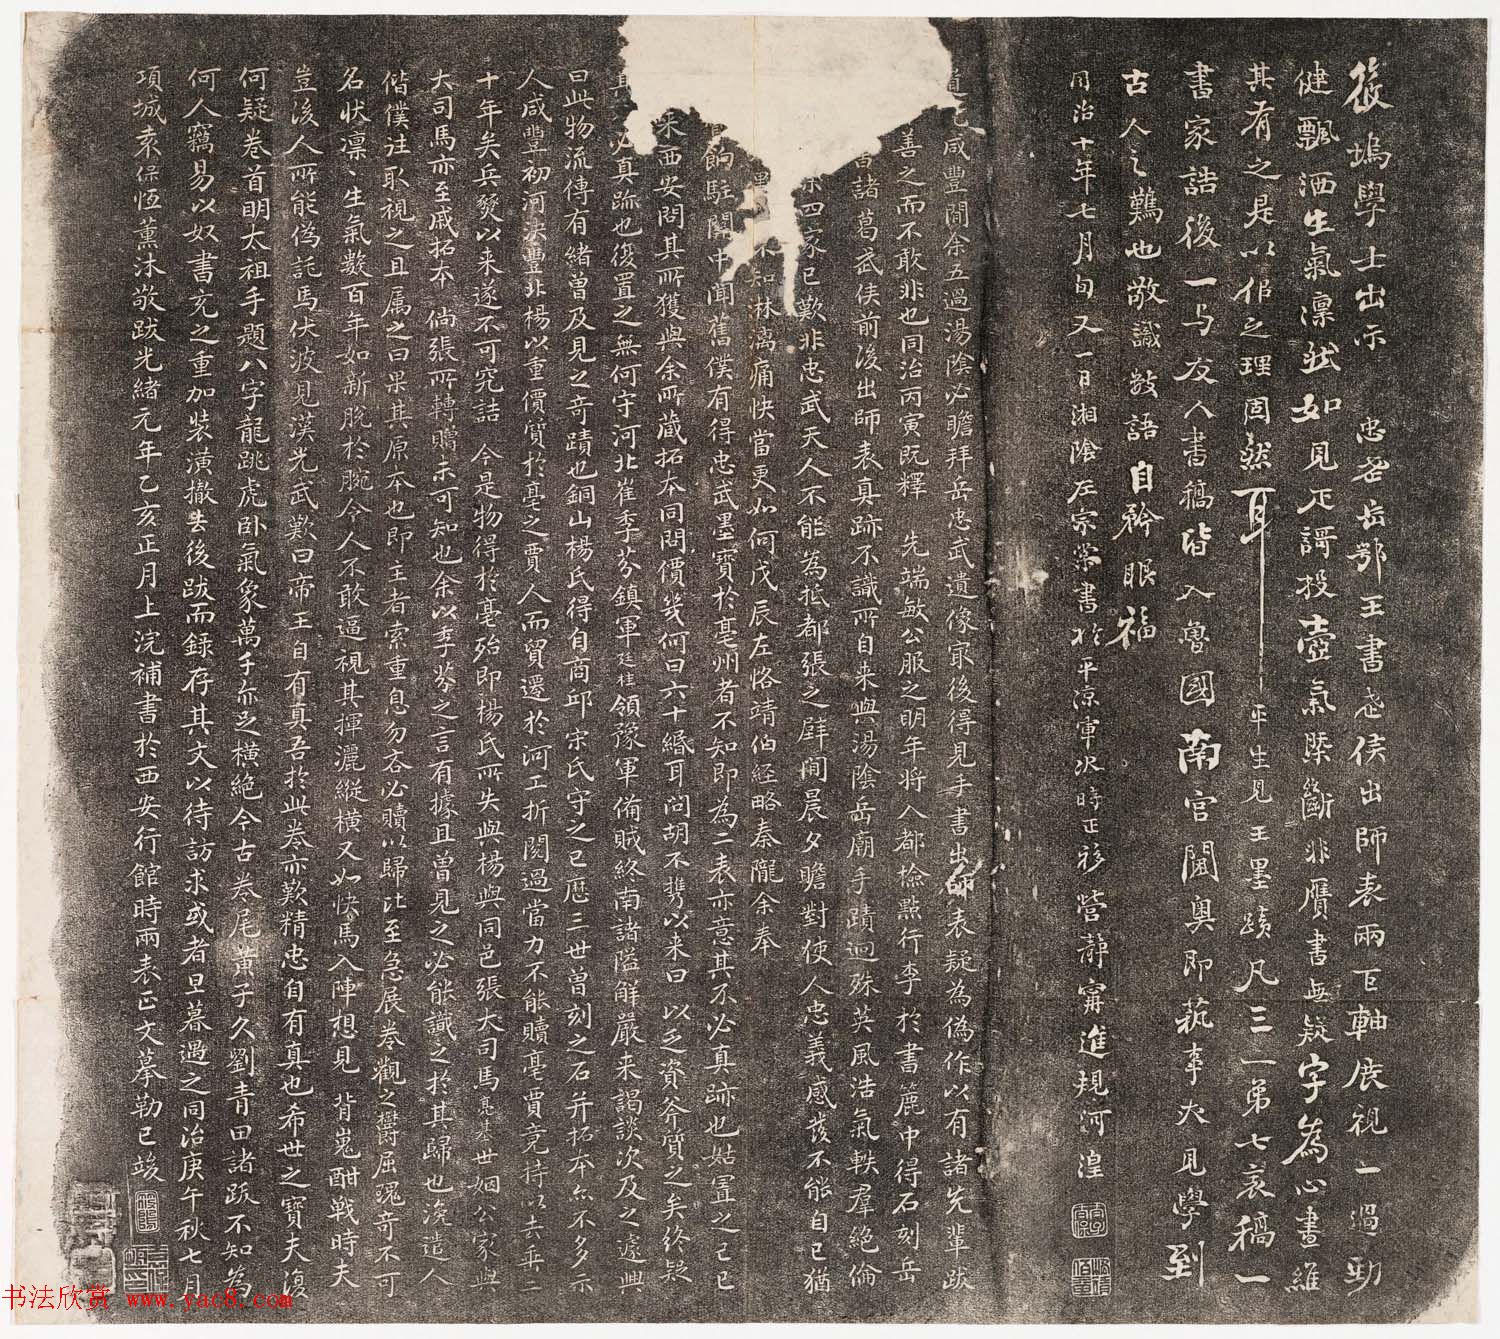 筱塢學士出示　忠武岳鄂王書武侯出師表兩巨軸展視一過勁
健飄洒生氣凛然如見正誶投壺氣槩斷非贋書無疑字為心畫維
其有之是以佀之理固然耳平生見王墨蹟凡三一第七哀稿一
書家誥後一与友人書稿皆入魯國南宫閫奥即蓺事大見學到
古人之難也敬識数語自矜眼福
同治十年七月旬又一日湘陰左宗棠書於平凉軍次時正移營静寧進規河湟
咸豐間余五過湯陰必瞻拜岳忠武遺像寂後得見手書出師表疑為偽作以有諸先輩跋
善之而不敢非也同治丙寅既釋　先端敏公服之明年將入都檢點行李於書簏中得石刻岳
書諸葛武侯前後出師表真跡不識所自来與湯陰岳廟手蹟迥殊英風浩氣軼羣絶倫
四家已歎非忠武天人不能為抵都張之壁間晨夕瞻對使人忠義感發不能自已猶
知淋漓痛快當更如何戊辰左恪靖伯經略秦隴余奉
餉駐關中聞舊僕有得忠武墨寶於亳州者不知即為二表亦意其不必真跡也姑置之己巳
来西安問其所獲與余所藏拓本同問價幾何曰六十緡耳問胡不携以来曰以乏資斧質之矣終疑
其必真跡也復置之無何守河北崔季芬鎮軍廷桂領豫軍備賊終南諸隘觧嚴来謁談次及之遽興
曰此物流傳有緒曾及見之奇蹟也銅山楊氏得自商邱宋氏守之已歷三世曾刻之石并拓本亦不多示
人咸豐初河决豐北楊以重價質於亳之賈人而貿遷於河工折閱過當力不能贖亳賈竟持以去兵
十年矣兵燹以来遂不可究詰　今是物得於亳殆即楊氏所失與楊與同邑張大司馬亮基世姻公家與
大司馬亦至戚拓本倘張所轉贈未可知也余以季芬之言有據且曾見之必能識之於其歸也浼遣人
偕僕往取視之且属之曰果其原本也即主者索重息勿吝必贖以歸比至急展拳觀之欝屈瓌奇不可
名状凛、生氣数百年如新脫於腕令人不敢逼視其揮灑縱横又如快馬入陣想見背嵬酣戰時夫
豈後人所能偽託馬伏波見漢光武歎曰帝王自有真吾於此卷亦歎精忠自有真也希世之寶夫復
何疑卷首明太祖手題八字龍跳虎卧氣象萬千亦足横絶今古卷尾黄子久劉青田諸跋不知為
何人竊易以奴書充之重加装潢撤去後跋而録存其文以待訪求或者旦暮遇之同治庚午秋七月
項城袁保恒薰沐敬跋光緒元年乙亥正月上浣補書於西安行館時兩表正文摹勒已竣
书法欣赏 www.yac8.com